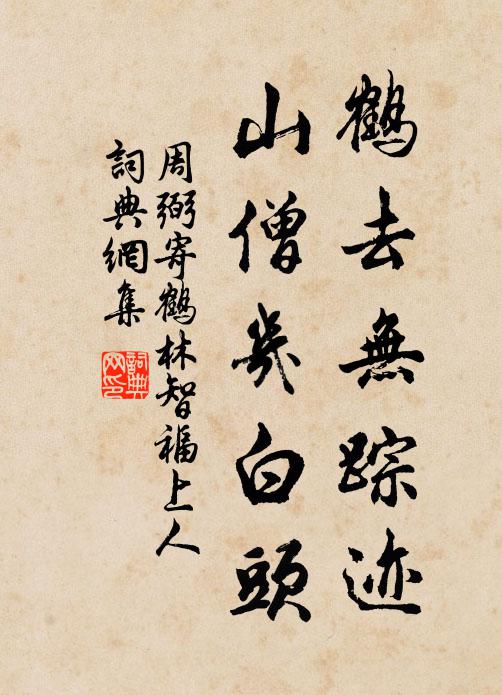 鶴去無踪迹
山僧幾白頭
周弼寄鶴林智福上人
詞典網集
詞典網印